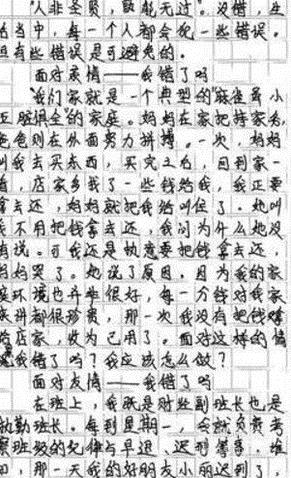 "人非圣贤，孰能无过"。没错，生
活当中，每一个人都会犯一些错误。
但有些错误是可避免的。
面对亲情——我错了吗
我们家就是一个典型的"麻雀虽小
五脏俱全"的家庭。妈妈在家把持家务，
爸爸则在外面努力拼搏。一次，妈妈
叫我去买东西，买完之后，回到家一
看，店家多找了一些钱给我，我正要
拿去还，妈妈就把我给叫住了。她叫
我不用把钱拿去还，我问为什么她没
有说。可我还是执意要把钱拿去还，
妈妈哭了。她说了原因，因为我的家
庭环境也并非很好，每一分钱对我家
来讲都很珍贵，那一次我没有把钱
给店家，收为己用了。面对这样的情
我错了吗？我应该怎么做？
面对友情——我错了吗
在班上，我既是副班长也是
执勤班长。每到星期一，会就负责考
察班级的纪律与早退、迟到等事，谁
，那一天我的好朋友小丽迟到了，